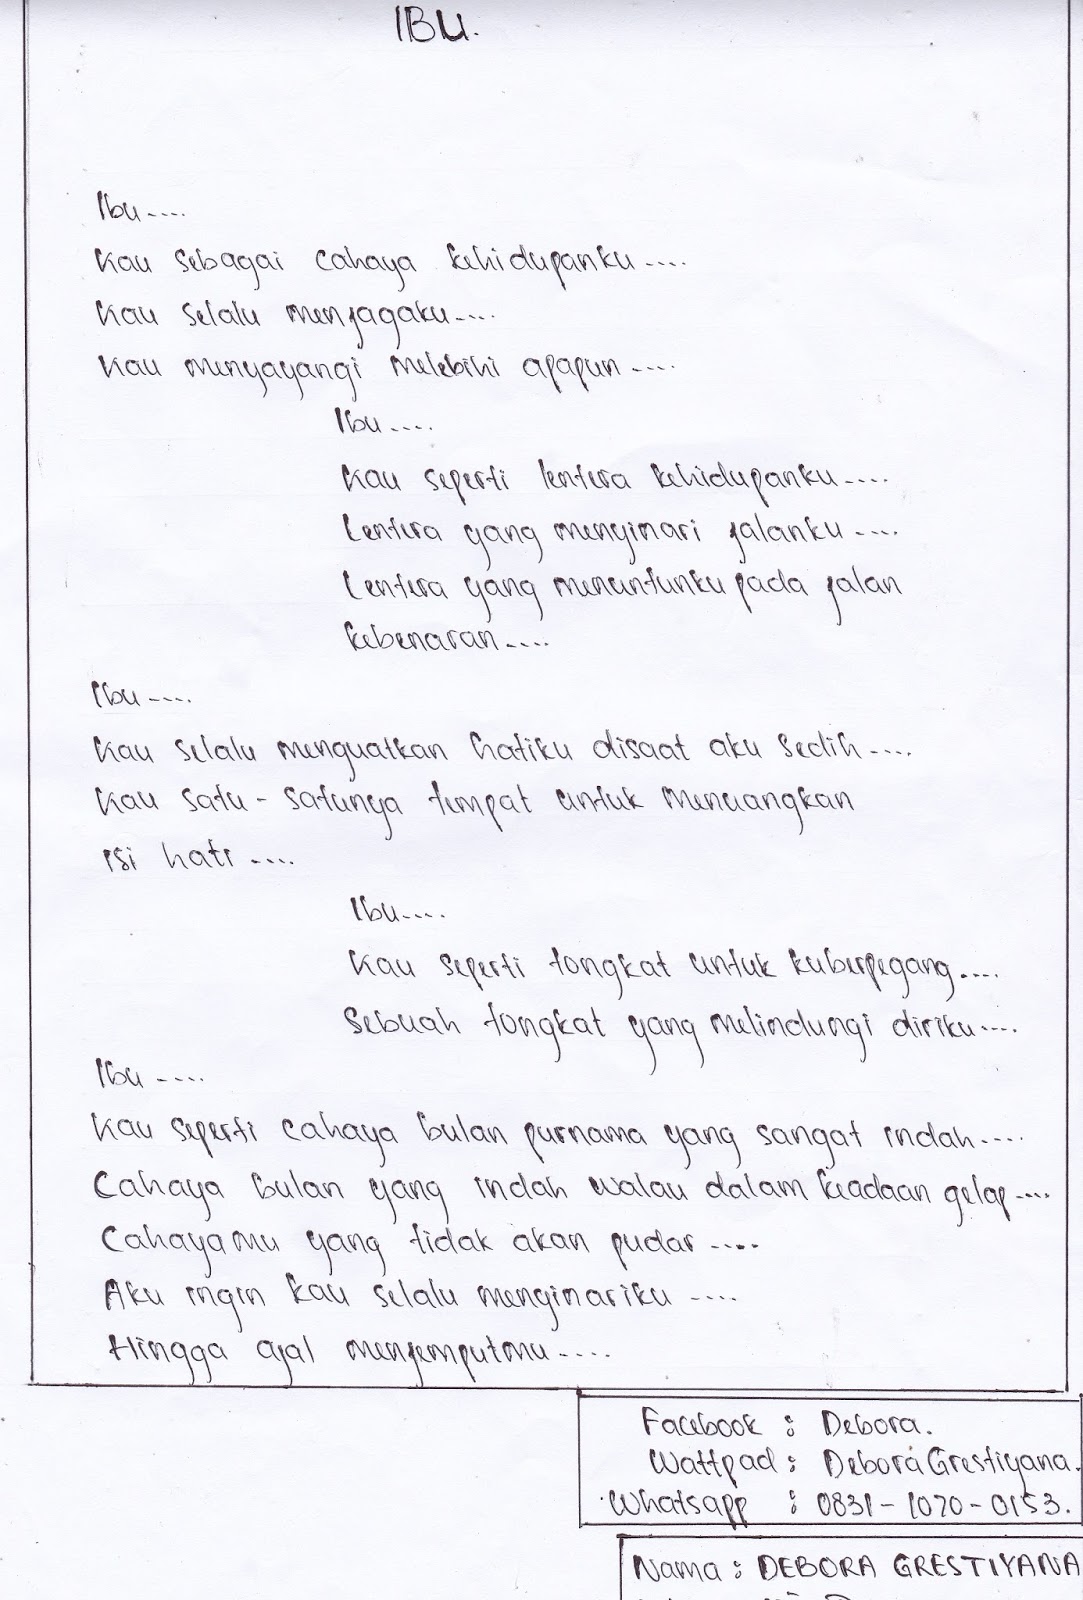 IBU.
Ibu....
Kau sebagai cahaya kehidupanku....
Kau selalu menjagaku....
Kau menyayangi melebihi apapun....
Ibu....
Kau seperti lentera kehidupanku....
Lentera yang menyinari jalanku....
Lentera yang menuntunku pada jalan
kebenaran....
Ibu....
Kau selalu menguatkan hatiku disaat aku sedih....
Kau satu-satunya tempat untuk menuangkan
isi hati....
Ibu....
Kau seperti tongkat untuk kuberpegang....
Sebuah tongkat yang melindungi diriku....
Ibu....
Kau seperti cahaya bulan purnama yang sangat indah....
Cahaya bulan yang indah walau dalam keadaan gelap....
Cahayamu yang tidak akan pudar....
Aku ingin kau selalu menyinariku....
Hingga ajal menjemputmu....
Facebook : Debora.
Wattpad : Debora Grestiyana.
Whatsapp : 0831-1070-0153.
Nama : DEBORA GRESTIYANA